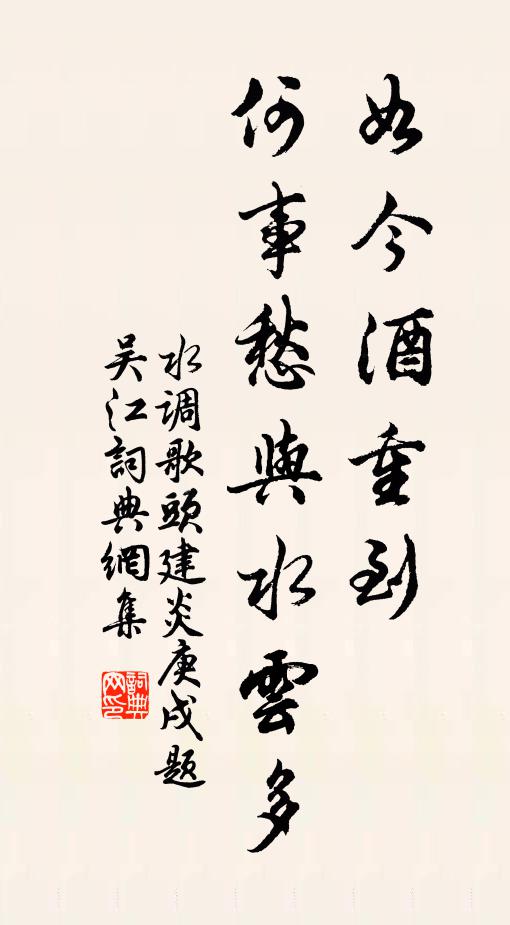 如今酒重到
何事愁與水雲多
水調歌頭建炎庚戌題
吳江詞典網集
詞典网印